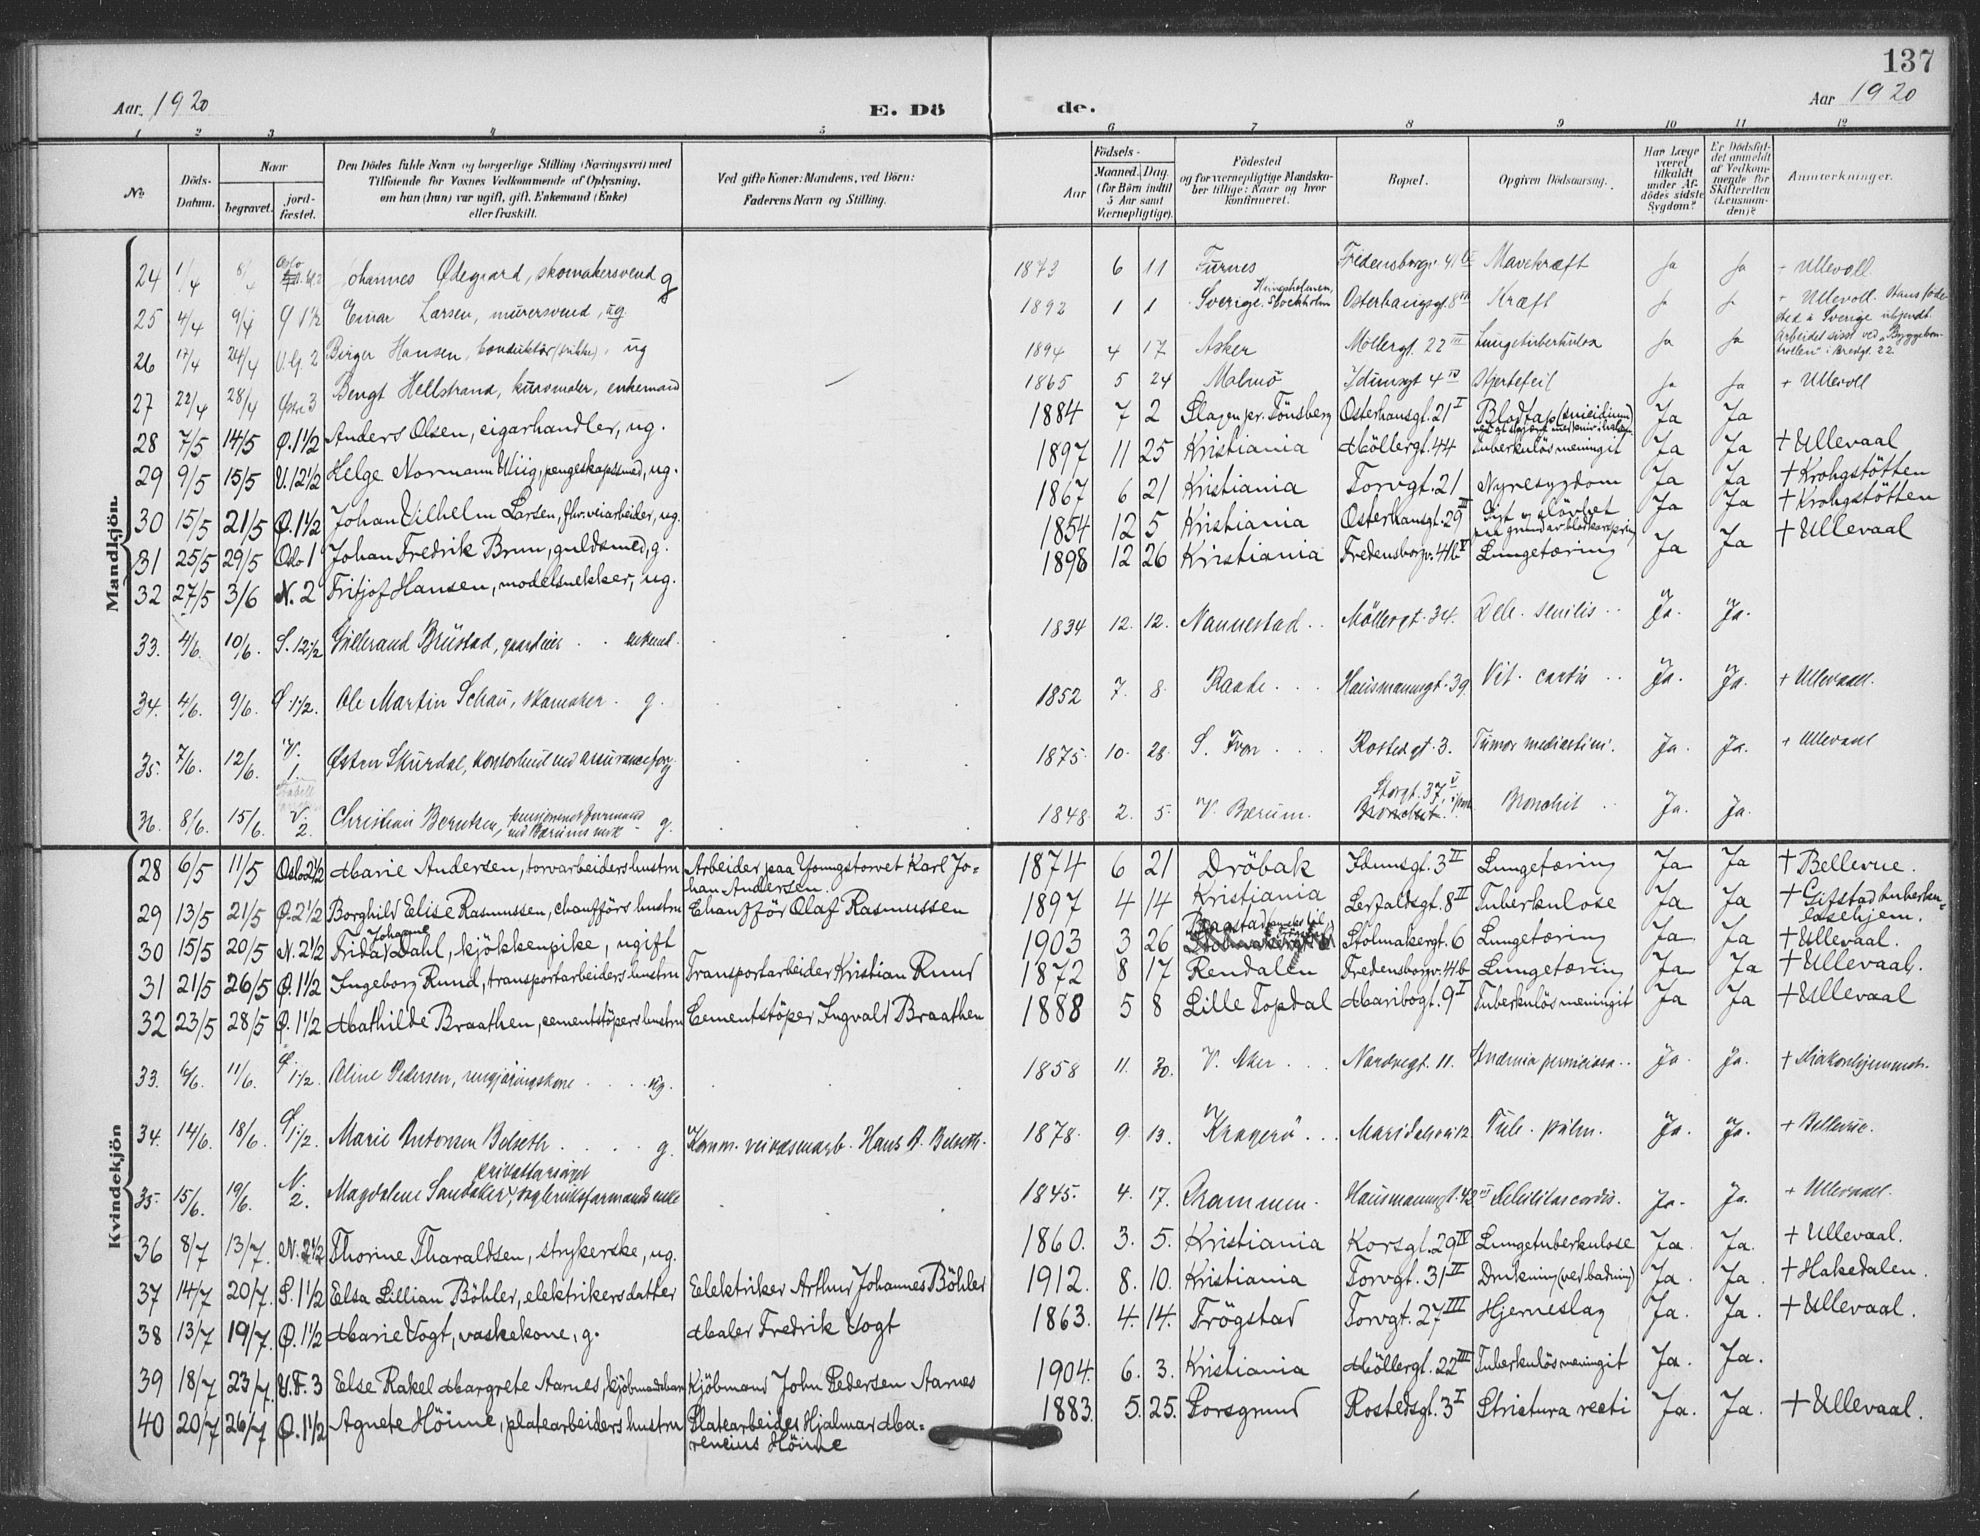 137
Aar 1920
E. Dö
de.
Aar 1920
1 2 3 4 5 6 7 8 9 10 11 12
No
Döds-Datum.
Naar
begravet.
jord-fæstet.
Den Dödes fulde Navn og borgerlige Stilling (Næringsvei) med
Tilföiende for Voxnes Vedkommende af Oplysning,
om han (hun) var ugift, gift, Enkemand (Enke)
eller fraskilt.
Ved gifte Koner: Mandens, ved Börn:
Faderens Navn og Stilling.
Födsels-
Aar
Maaned. Dag.
(for Börn indtil
5 Aar samt
Værnepligtige).
Födested
og for værnepligtige Mandska-
ber tillige: Naar og hvor
konfirmeret.
Bopæl.
Opgiven Dödsaarsag.
Har Læge
været
tilkaldt
under Af-
dödes sidste
Sygdom?
Er Dödsfal-
det anmeldt
af Vedkom-
mende for
Skifteretten
(Lensman-
den)?
Anmærkninger.
Mandkjön
24 1/4 8/4 Johannes Ødegaard, skomakersvend g 1873 6 11 Furnes Fredensborgv. 41 Mavekræft Ja Ja + Ullevoll
25 4/4 9/4 Ø 1½ Einar Larsen, murersvend, ug. 1892 1 1 Kungsholmen, Sverige. Stockholm Osterhausgt. 8 Kræft Ja Ja + Ullevoll. Hans føde-
sted i Sverige ukjendt.
26 17/4 24/4 V. G. 2 Birger Hansen, konduktör, ug 1894 4 17 Asker Möllergt. 22 III Lungetuberkulose Ja Ja Arbeidet sist ved "Byggekon-
trollen" i Bredgt. 22
27 22/4 28/4 Østre 3 Bengt Hellstrand, kursmaler, enkemand 1865 5 24 Malmö Idunsgt 4 Hjertefeil Ja Ja + Ullevoll
28 7/5 14/5 Ø. 1½ Anders Olsen, cigarhandler, ug. 1884 7 2 Slagen pr. Tönsberg Osterhausgt. 21 I Blodtap (suicidium) Ja Ja
29 9/5 15/5 V. 12½ Helge Normann Wiig, pengeskapsmed, ug. 1897 11 25 Kristiania Möllergt. 44 Tuberkulös meningit Ja Ja + Ullevaal
30 15/5 21/5 Ø. 1½ Johan Vilhelm Larsen, fhv. veiarbeider, ug. 1867 6 21 Kristiania Torvgt. 21 Nyresygdom Ja Ja + Krohgstötten
31 25/5 29/5 Oslo 1 Johan Fredrik Brun, guldsmed, g. 1854 12 5 Kristiania Osterhausgt. 29 II Ja Ja + Krohgstötten
32 27/5 3/6 N. 2 Fritjof Hansen, modelsnekker, ug. 1898 12 26 Kristiania Fredensborgv. 46 Lungetæring Ja Ja + Ullevaal
33. 4/6. 10/6. S. 12½ Gulbrand Brustad, gaardeier enkemd. 1834 12. 12. Nannestad Möllergt. 34. Deb. senilis Ja. Ja.
34. 4/6. 9/6. Ø 1½. Ole Martin Schau, skomaker. g. 1852 7. 8. Raade Hausmannsgt. 39 Vit. cordis Ja. Ja. + Ullevaal.
35. 7/6. 12/6. V. 1. Østen Skurdal, kontorbud ved assuranceforr. g 1875. 10. 28. S. Fron Rostedsgt. 3. Tumor mediastini. Ja. Ja. + Ullevaal
36. 8/6. 15/6. V. 2. Christian Berntsen, pensjoneret formand
ved Bærums verk g. 1848. 2. 5. V. Bærum. Storgt. 37 Bronchit Bronchit Ja. Ja.
Kvindekjön
28 6/5 11/5 Oslo 2½ Marie Andersen, torvarbeiders hustru Arbeider paa Youngstorvet Karl Jo-
han Andersen. 1874 6 21 Dröbak Idunsgt. 3 II Lungetæring Ja Ja + Bellevue.
29 13/5 21/5 Ø. 2½ Borghild Elise Rasmussen, chaufförs hustru Chaufför Olaf Rasmussen 1897 4 14 Kristiania Leirfaldsgt. 8 II Tuberkulose Ja Ja + Gifstad tuberku-
losehjem.
30 15/5 20/5 N. 2½ Frida Johanne Dahl, kjökkenpike, ugift 1903 3 26 Stolmakergt. 6 Lungetæring Ja Ja + Ullevaal.
31 21/5 26/5 Ø. 1½ Ingeborg Rund, transportarbeiders hustru Transportarbeider Kristian Rund 1872 8 17 Rendalen Fredensborgv. 46 Lungetæring Ja Ja + Ullevaal.
32 23/5 28/5 Ø. 1½ Mathilde Braathen, cementstöpers hustru Cementstöper Ingvald Braathen 1888 5 8 Lille Topdal Maribogt. 9 I Tuberkulös meningit Ja Ja + Ullevaal
33. 6/6. 11/6. Ø. 1½. Oline Pedersen, rengjöringskone ug. 1858 11. 30. V. Aker Nordregt. 11. Anæmia perniciosa Ja. Ja. + Diakonhjemmet.
34. 14/6. 18/6. Ø 1½. Marie Antonsen Belseth g. Komm. veivæsenarb. Hans A. Belseth. 1878. 9. 13. Kragerö Maridalsv. 12 Tub. pulm. Ja. Ja. + Bellevue.
35. 15/6. 19/6. N. 2. Magdalene Sandaker, privatforsörget 1845. 4. 17. Drammen. Hausmannsgt. 42 III Debilitas cordis. Ja. Ja. + Ullevaal.
36 8/7 13/7. N. 2½ Thorine Tharaldsen, strykerske, ug. 1860. 3. 5. Kristiania Korsgt. 29 IV Lungetuberkulose Ja. Ja. + Ullevaal.
37 14/7 20/7. S. 1½ Elsa Lillian Böhler, elektrikers datter Elektriker Arthur Johannes Böhler 1912. 8. 10. Kristiania Torvgt. 31 II Drukning (ved badning) Ja. Ja. + Hakedalen.
38 13/7 19/7. Ø. 1½ Marie Vogt, vaskekone, g. Maler Fredrik Vogt 1863. 4. 14. Trögstad Torvgt. 27 III Hjerneslag Ja. Ja. + Ullevaal.
39 18/7 23/7. V. F. 3 Else Rakel Margrete Aarnes, Kjöbmand John Pedersen Aarnes 1904. 6. 3. Kristiania Möllergt. 22 III Tuberkulös meningit Ja. Ja.
40 20/7 26/7 Ø. 1½ Agnete Höime, platearbeiders hustru Platearbeider Hjalmar Ma-
rencius Höime 1883. 5. 25. Porsgrund Rostedsgt. 3 I Strictura recti Ja. Ja. + Ullevaal.